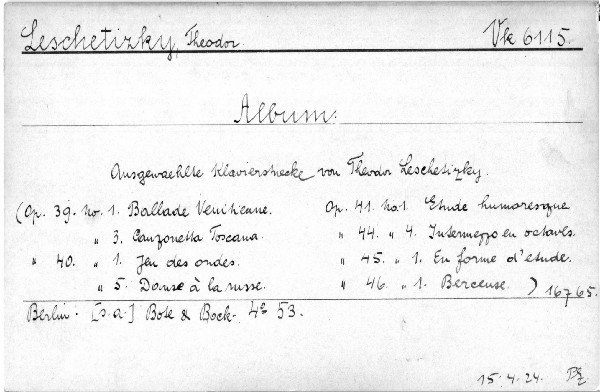 Leschetizky, Theodor. Vk 6115.
Album.
Ausgewaehlte Klavierstuecke von Theodor Leschetizky.
(Op. 39. No. 1. Ballade Venitienne. Op. 41. No.1. Etude humoresque
" 3. Canzonetta Toscana. " 44. " 4. Intermezzo en octaves.
" 40. " 1. Jeu des ondes. " 45. " 1. En forme d'etude.
" 5. Danse à la russe. " 46. " 1. Berceuse. ) 16765.
Berlin. [s.a.] Bote & Bock. 4° 53.
15.4.24.